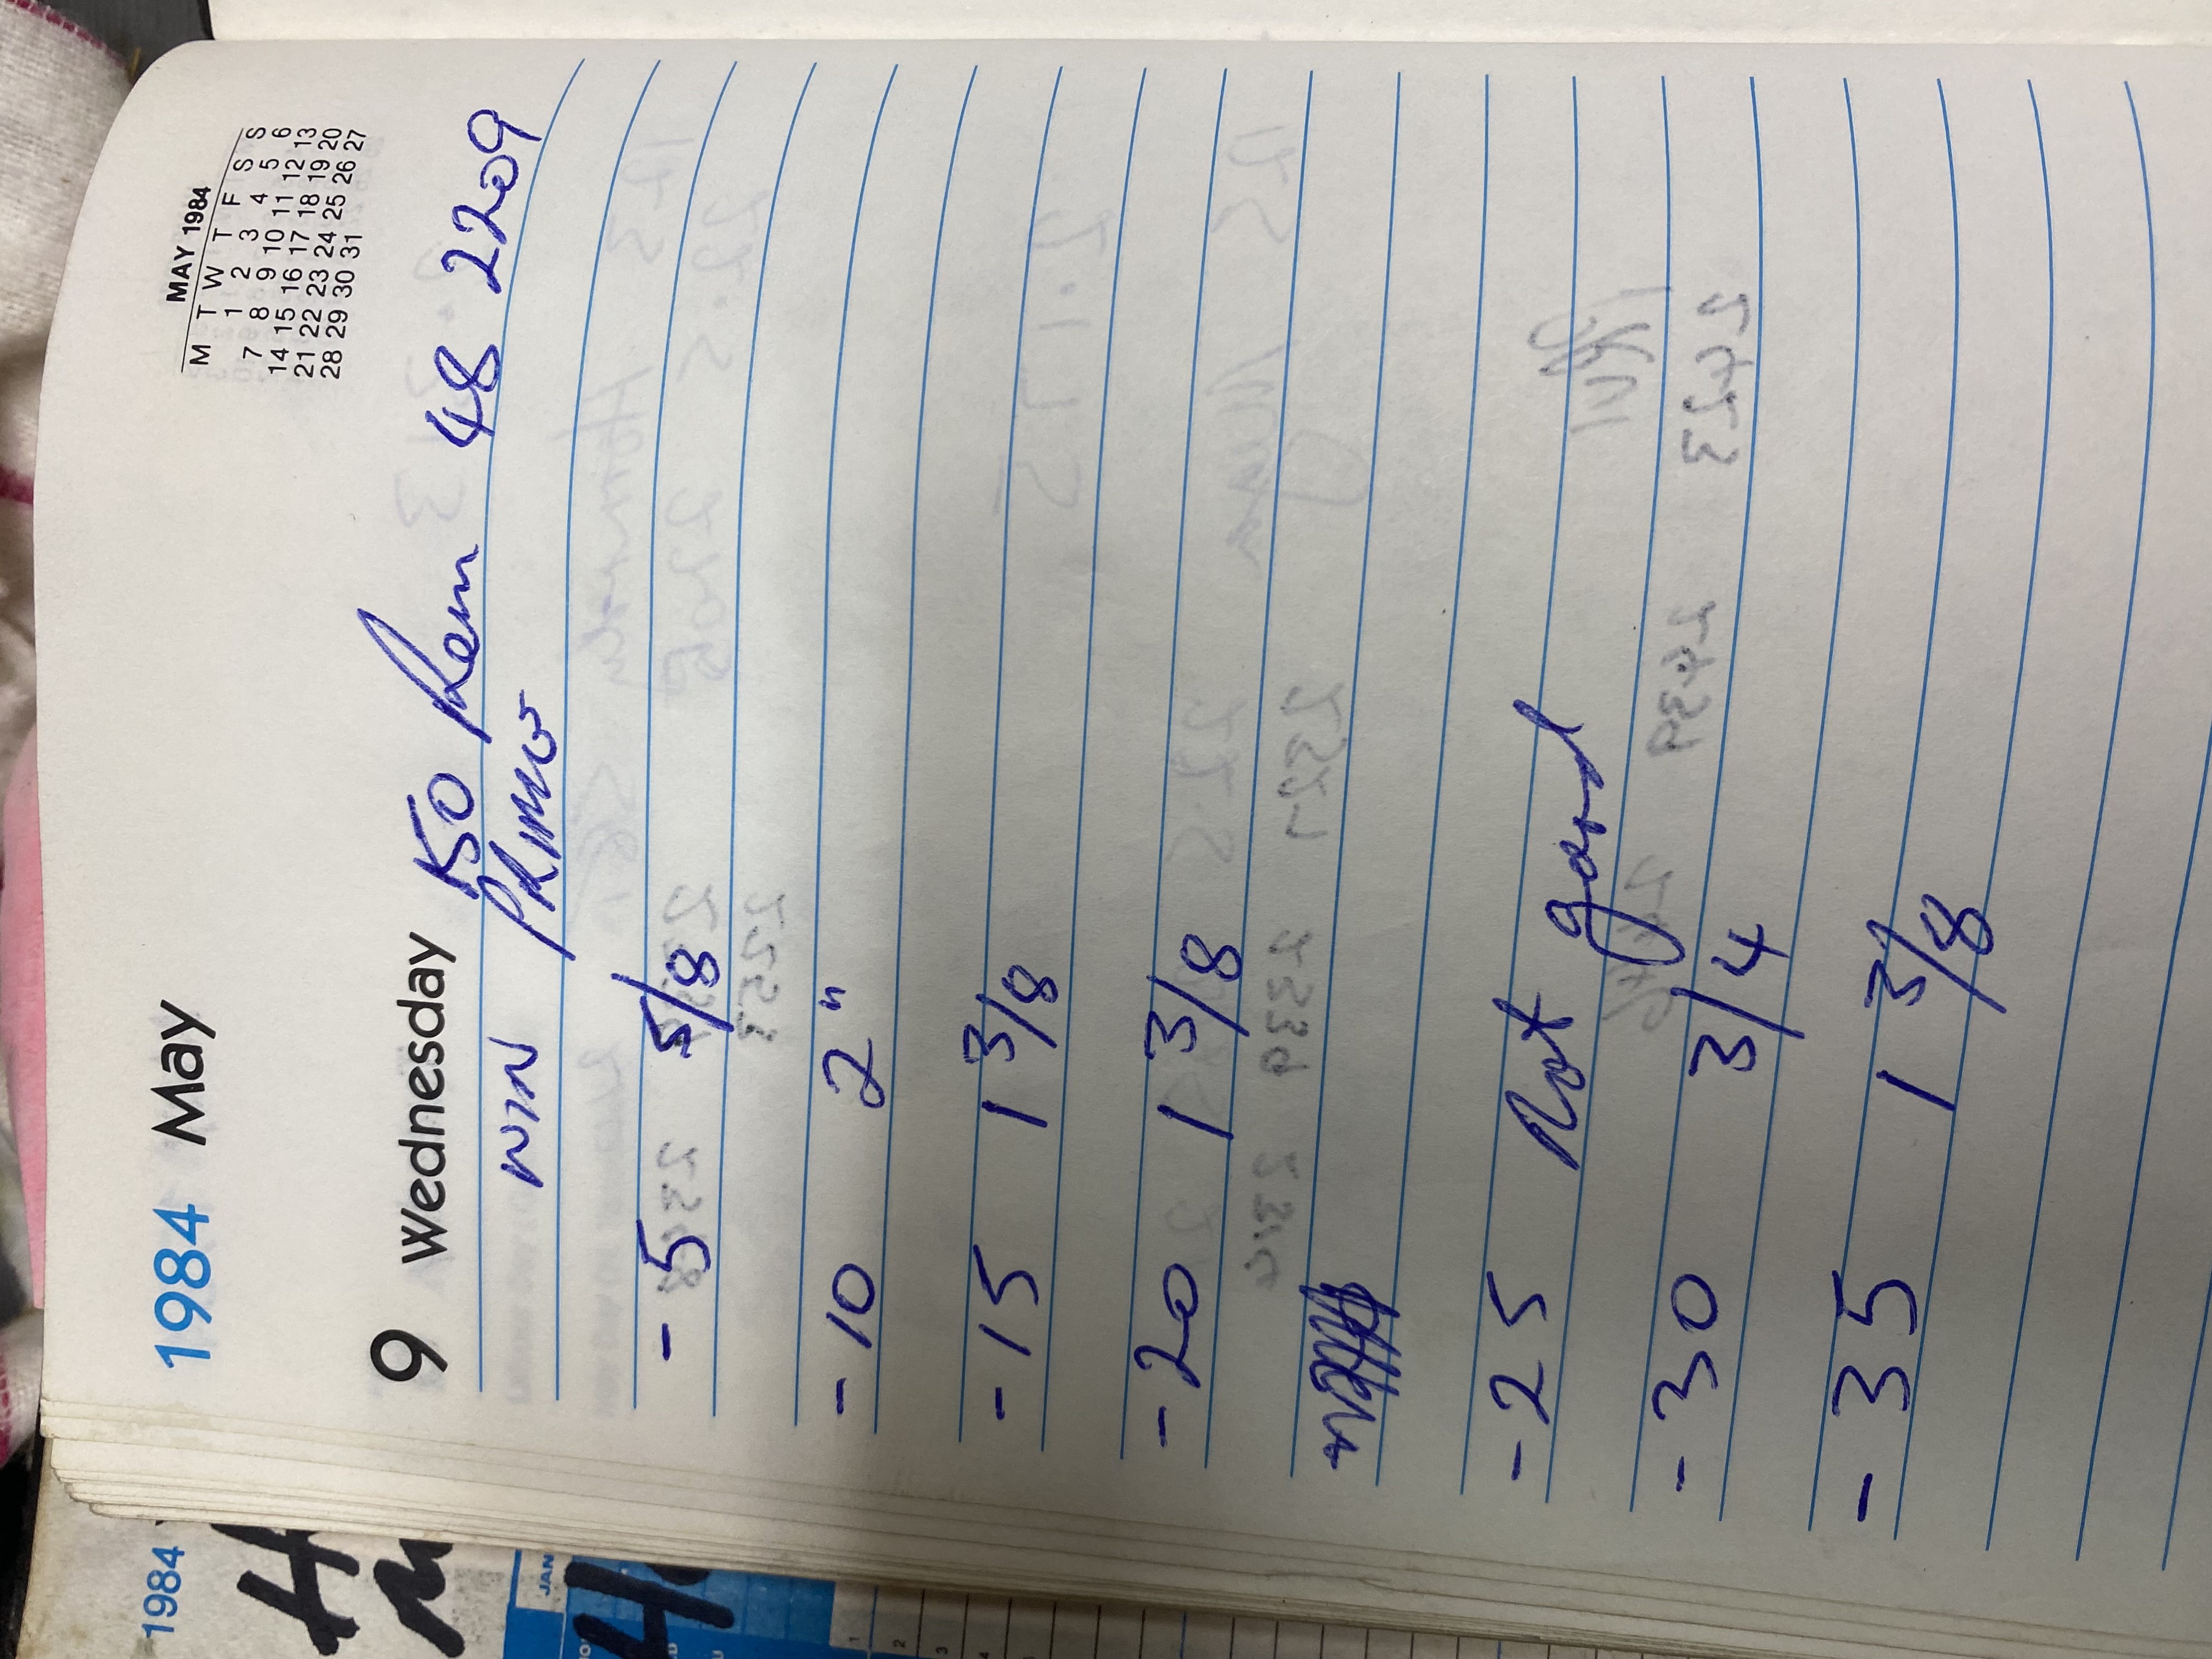 1984 May
MAY 1984
M T W T F S S
1 2 3 4 5 6
7 8 9 10 11 12 13
14 15 16 17 18 19 20
21 22 23 24 25 26 27
28 29 30 31
9 Wednesday 50 48 2209
WIN PRIMO
- 5 5/8
- 10 2"
- 15 1 3/8
- 20 1 3/8
- 25 Not good
- 30 3/4
- 35 1 3/8
1984
JAN